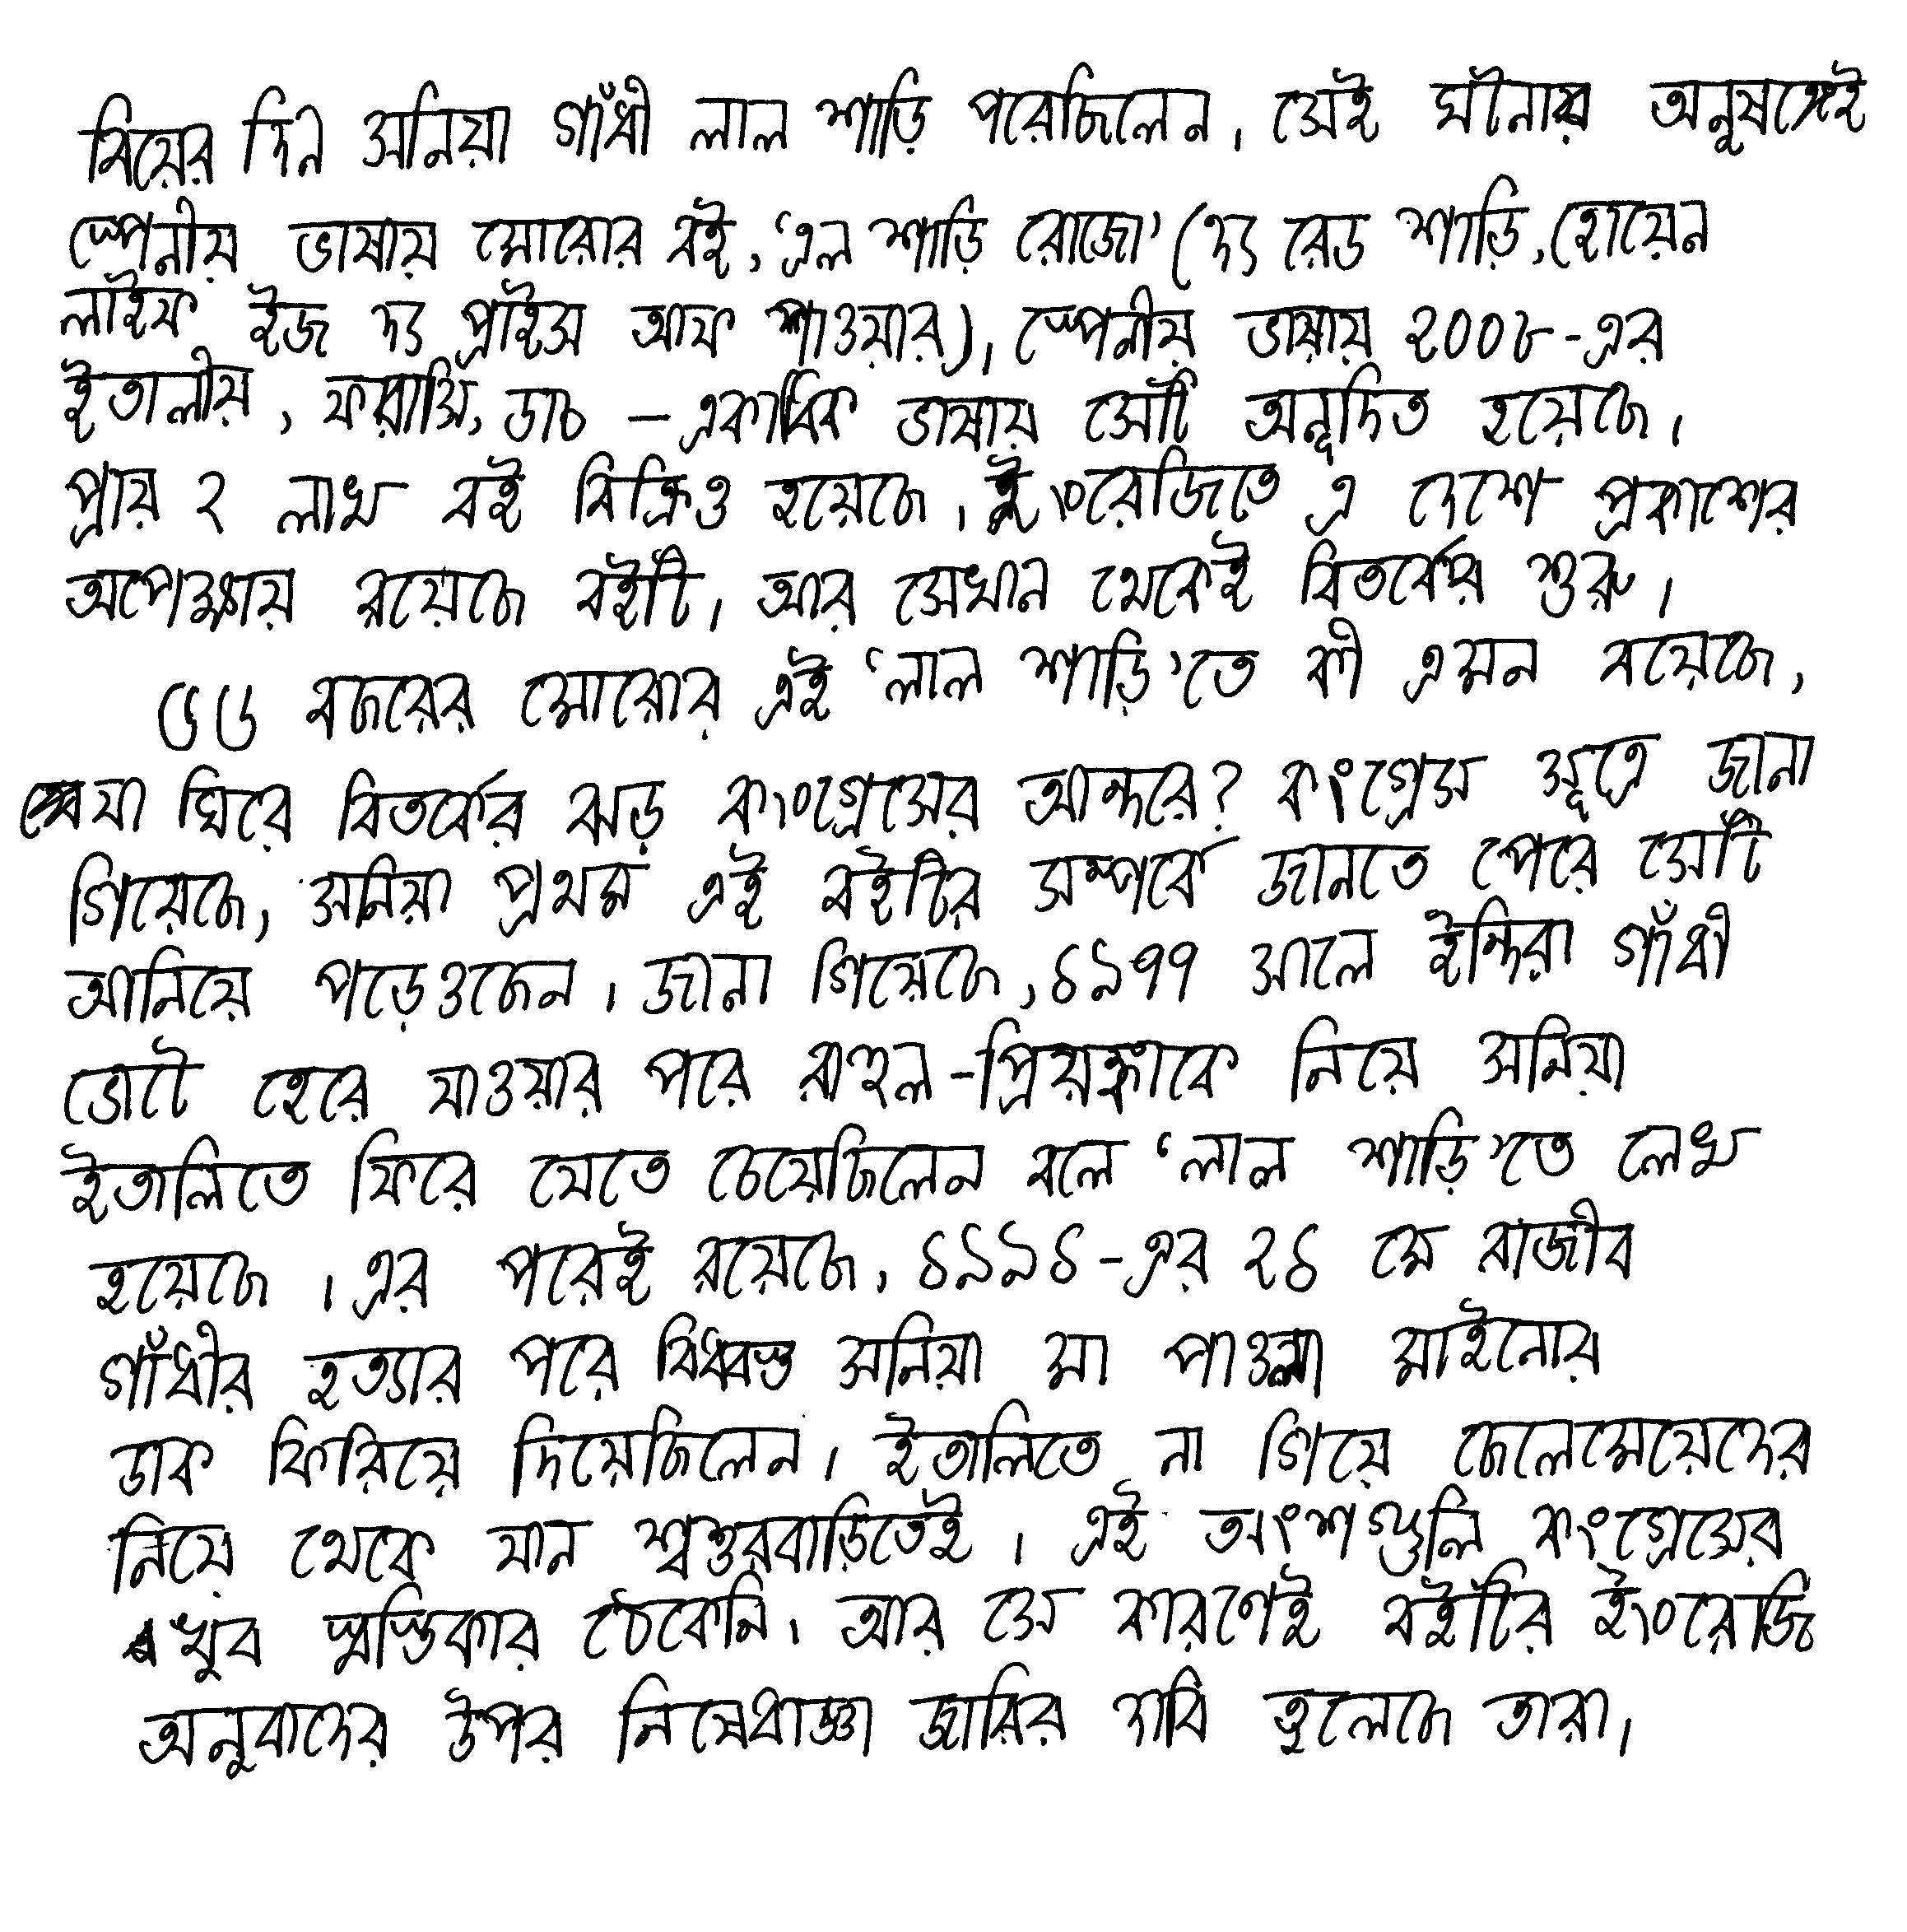 বিয়ের দিন সনিয়া গাঁধী লাল শাড়ি পরেছিলেন। সেই ঘটনার অনুষঙ্গেই
স্পেনীয় ভাষায় মোরোর বই, ‘এল শাড়ি রোজো’ (দ্য রেড শাড়ি, হোয়েন
লাইফ ইজ দ্য প্রাইস অফ পাওয়ার)। স্পেনীয় ভাষায় ২০০৮-এর
ইতালীয়, ফরাসি, ডাচ – একাধিক ভাষায় সেটি অনূদিত হয়েছে।
প্রায় ২ লাখ বই বিক্রিও হয়েছে। ইংরেজিতে এ দেশে প্রকাশের
অপেক্ষায় রয়েছে বইটি। আর সেখান থেকেই বিতর্কের শুরু।
৫৫ বছরের মোরোর এই ‘লাল শাড়ি’তে কী এমন রয়েছে,
যা ঘিরে বিতর্কের ঝড় কংগ্রেসের অন্দরে? কংগ্রেস সূত্রে জানা
গিয়েছে, সনিয়া প্রথম এই বইটির সম্পর্কে জানতে পেরে সেটি
আনিয়ে পড়েওছেন। জানা গিয়েছে, ১৯৭৭ সালে ইন্দিরা গাঁধী
ভোটে হেরে যাওয়ার পরে রাহুল-প্রিয়ঙ্কাকে নিয়ে সনিয়া
ইতালিতে ফিরে যেতে চেয়েছিলেন বলে ‘লাল শাড়ি’তে লেখা
হয়েছে। এর পরেই রয়েছে, ১৯৯১-এর ২১ মে রাজীব
গাঁধীর হত্যার পরে বিধ্বস্ত সনিয়া মা পাওলা মাইনোর
ডাক ফিরিয়ে দিয়েছিলেন। ইতালিতে না গিয়ে ছেলেমেয়েদের
নিয়ে থেকে যান শ্বশুরবাড়িতেই। এই অংশগুলি কংগ্রেসের
খুব স্বস্তিকার ঠেকেনি। আর সে কারণেই বইটির ইংরেজি
অনুবাদের উপর নিষেধাজ্ঞা জারির দাবি তুলেছে তারা।